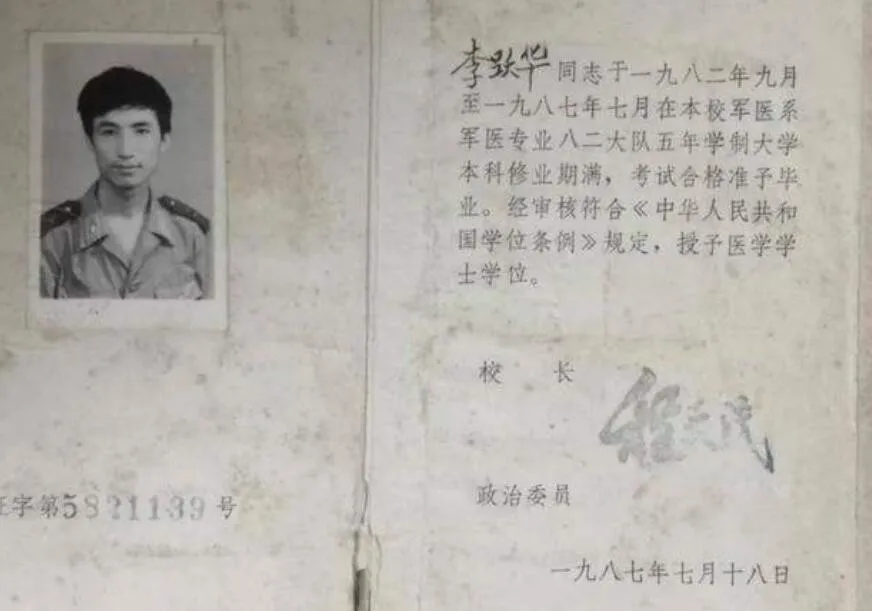 证字第5821139号
李跃华同志于一九八二年九月
至一九八七年七月在本校军医系
军医专业八二大队五年学制大学
本科修业期满，考试合格准予毕
业。经审核符合《中华人民共和
国学位条例》规定，授予医学学
士学位。
校长
程天民
政治委员
一九八七年七月十八日